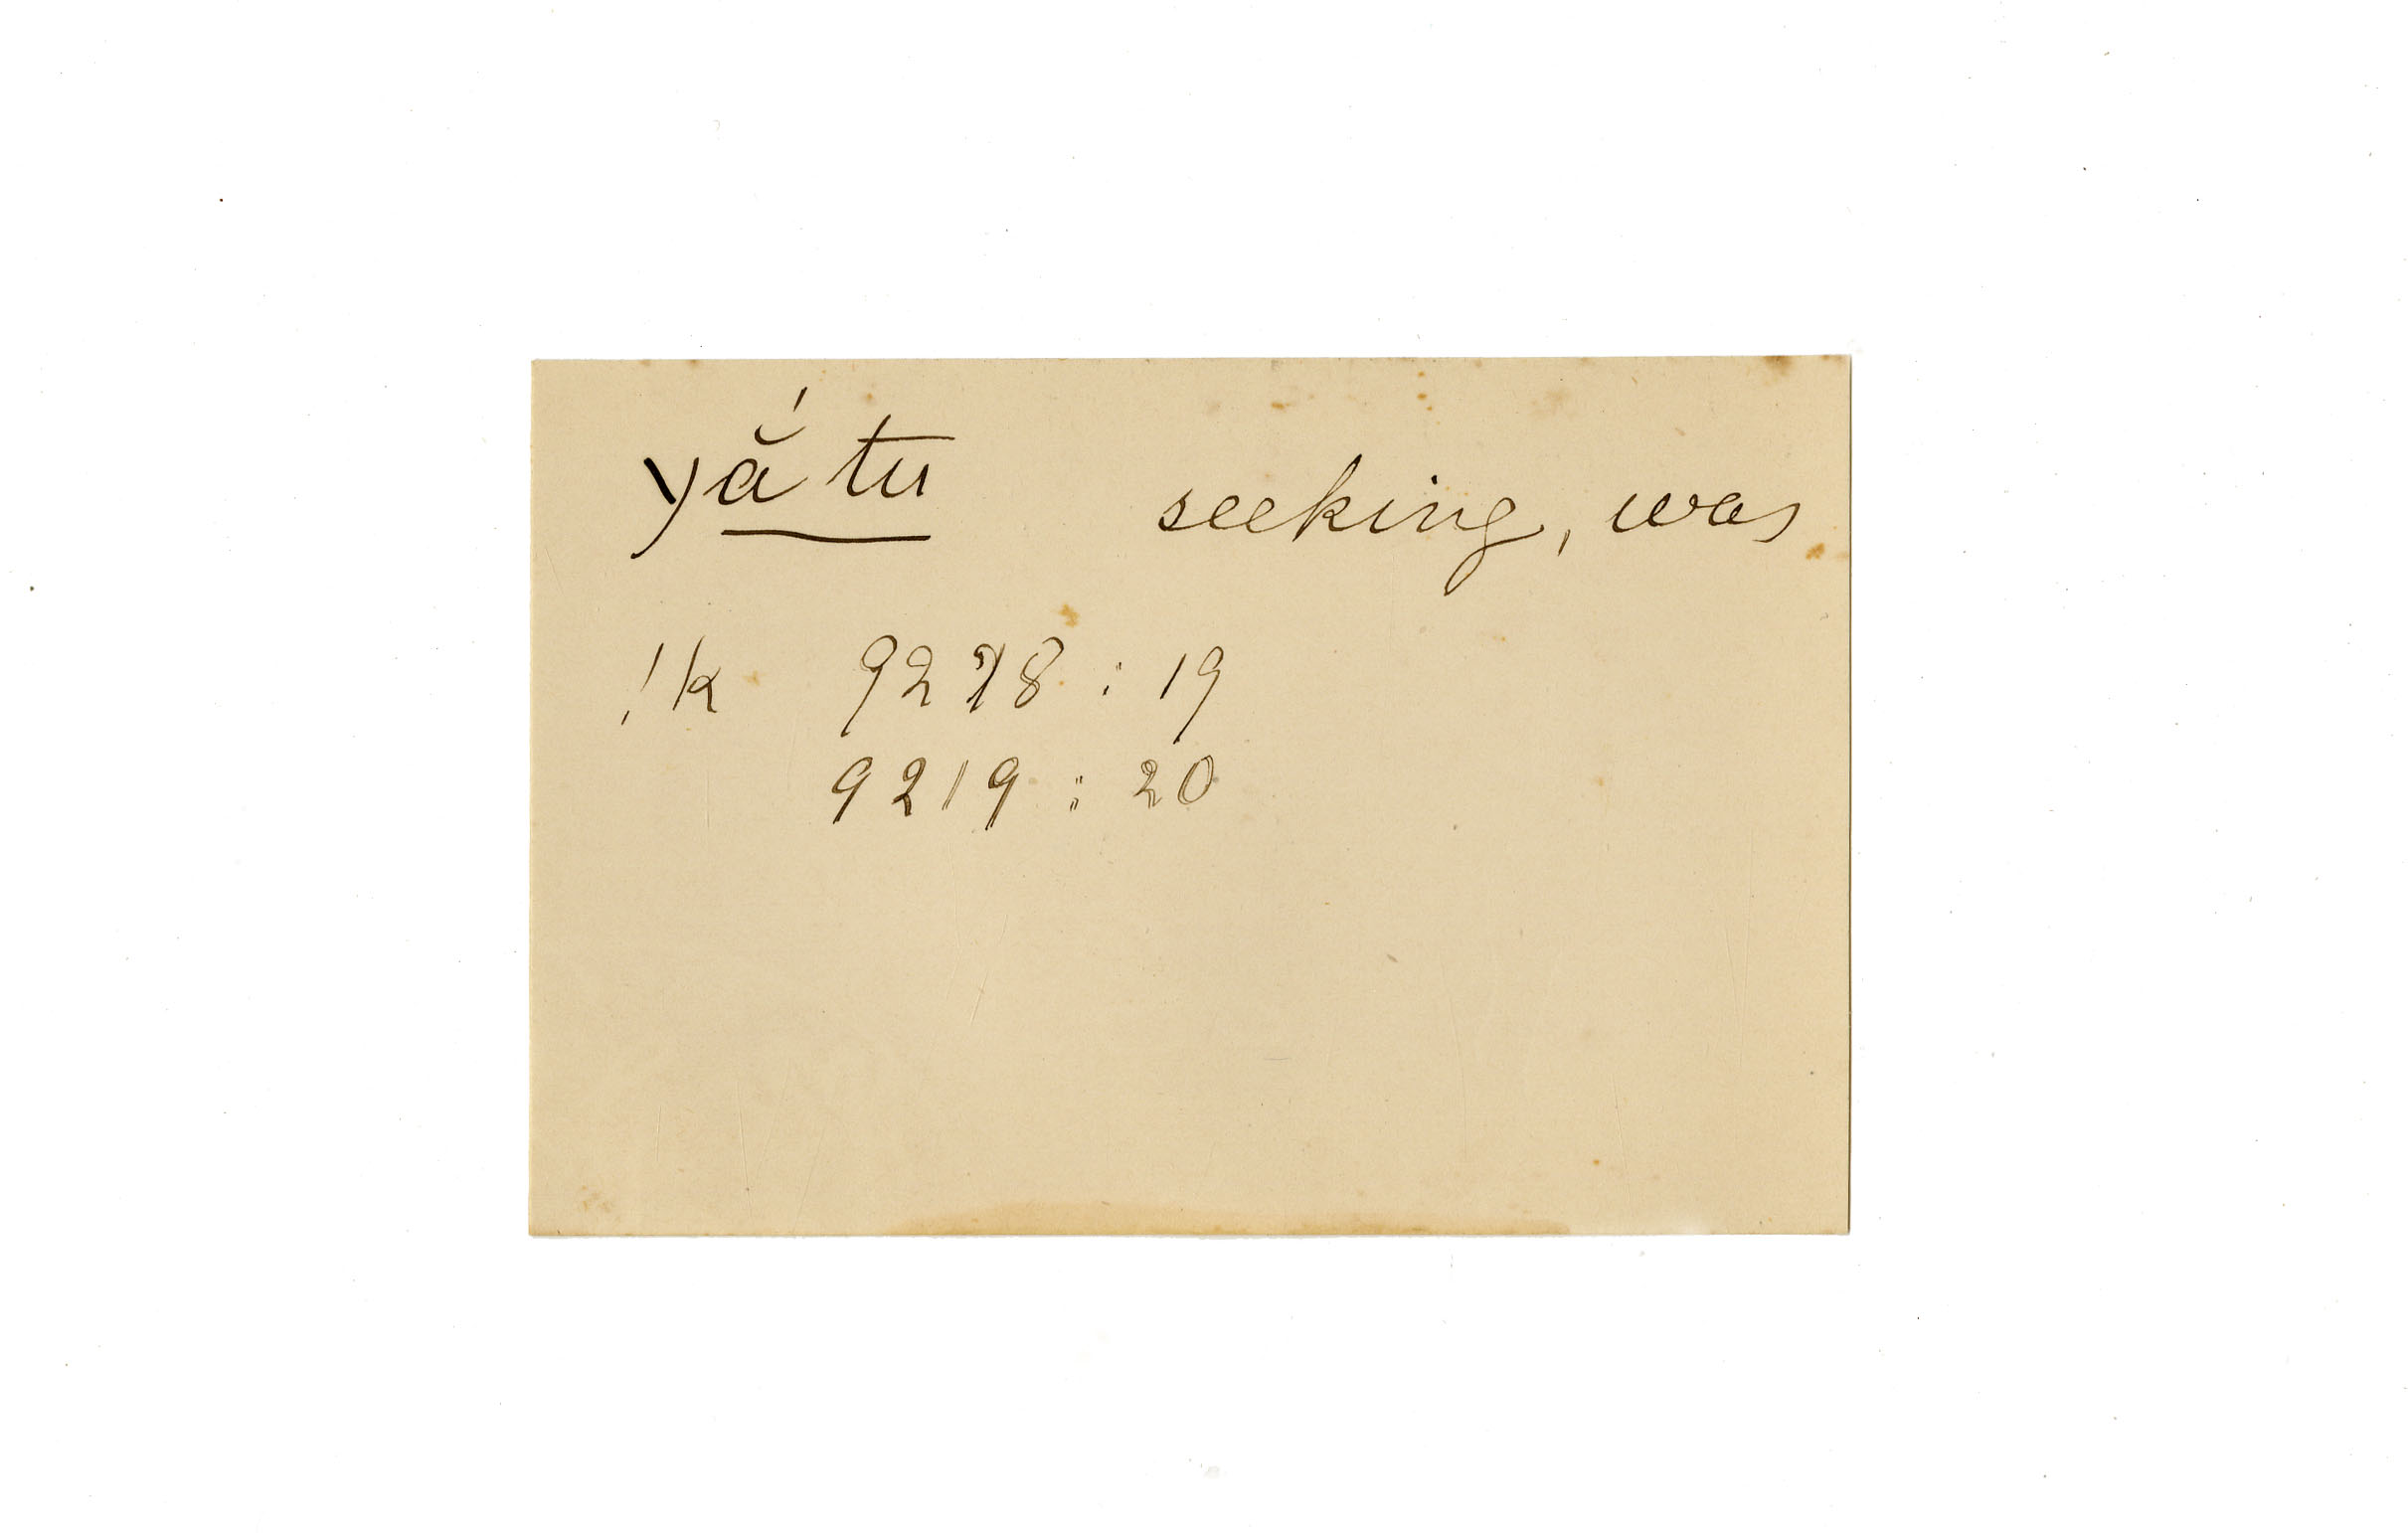 yắ tu seeking, was
!k 9278 : 19
9219 : 20